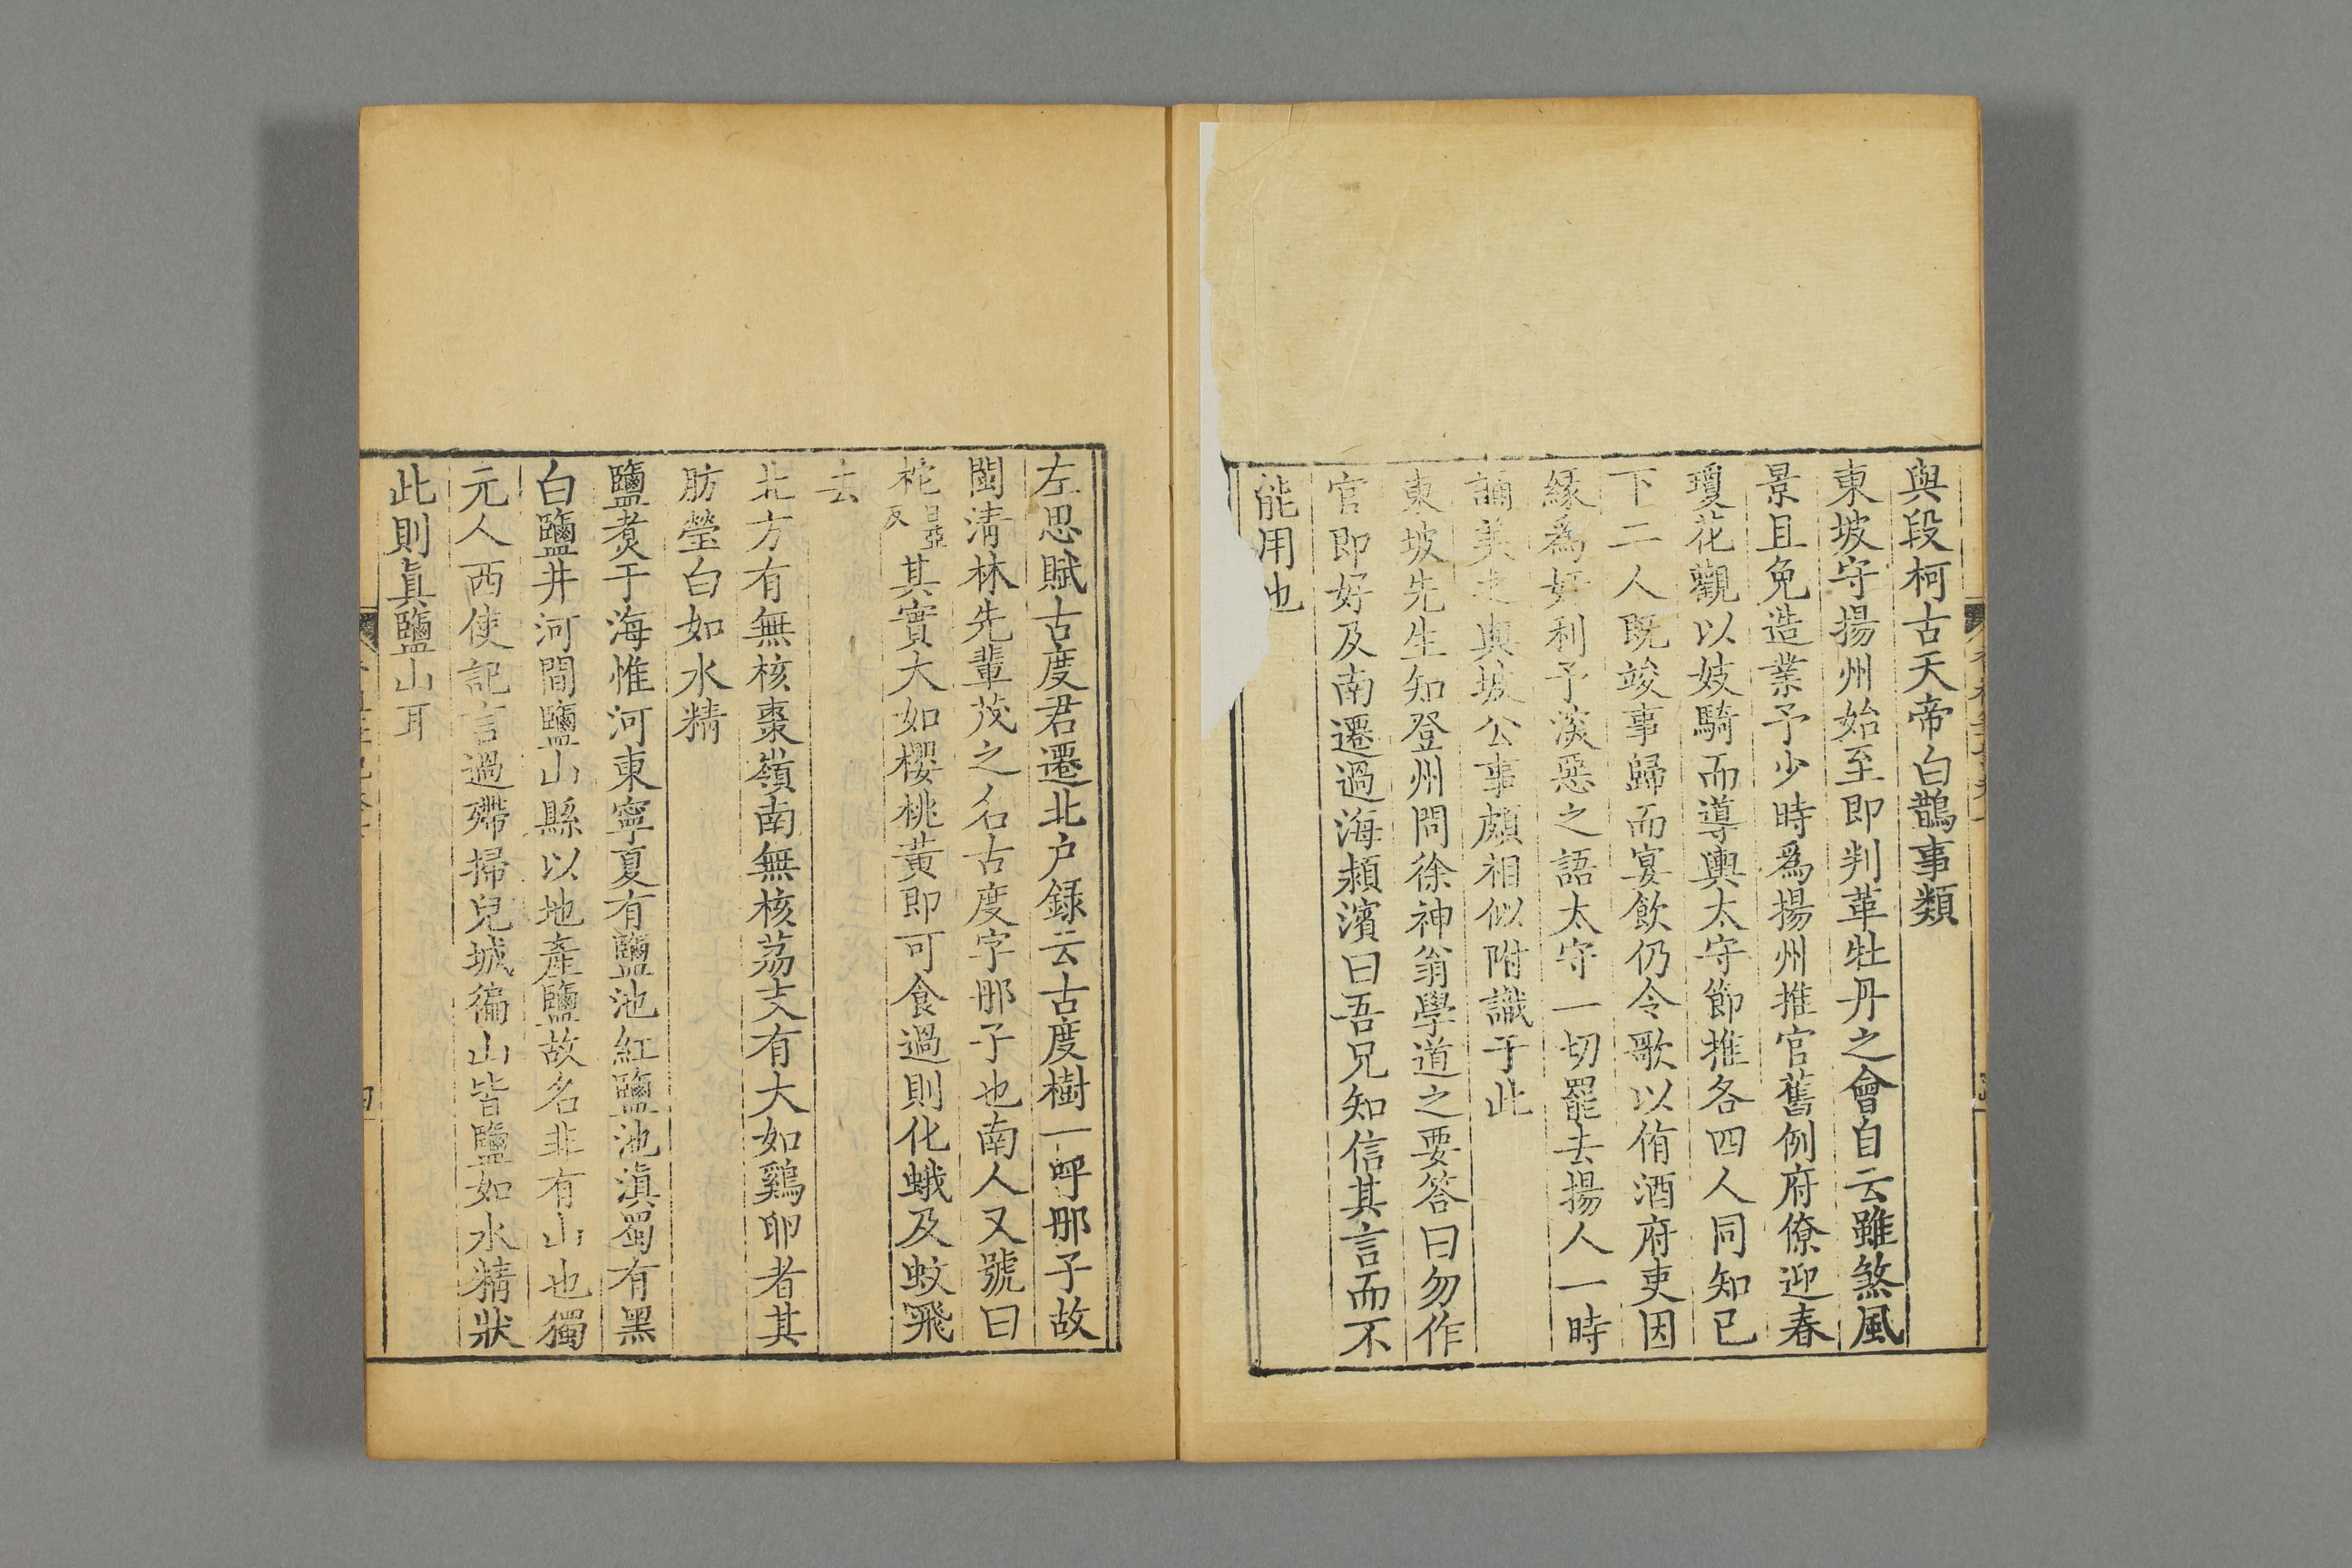 與段柯古天帝白鵲事類
東坡守揚州始至即判革牡丹之會自云雖煞風
景且免造業予少時爲揚州推官舊例府僚迎春
瓊花觀以妓騎而導輿太守節推各四人同知已
下二人旣竣事歸而宴飲仍令歌以侑酒府吏因
緣爲奸利予深惡之語太守一切罷去揚人一時
誦美之與坡公事頗相似附識于此
東坡先生知登州問徐神翁學道之要答曰勿作
官即好及南遷過海潁濱曰吾兄知信其言而不
能用也
左思賦古度君遷北户録云古度樹一呼𨚗子故
閩淸林先輩茂之名古度字𨚗子也南人又號曰
柁
反
其實大如櫻桃黃即可食過則化蛾及蚊飛
去
北方有無核棗嶺南無核荔支有大如鷄卵者其
肪瑩白如水精
鹽煑于海惟河東寧夏有鹽池紅鹽池滇蜀有黑
白鹽井河間鹽山縣以地產鹽故名非有山也獨
元人西使記言過殢掃兒城徧山皆鹽如水精狀
此則眞鹽山耳